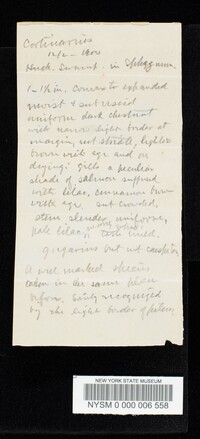 Cortinarius
12/2 - 1900
Huck. Swamp. in Sphagnum
1-1½ in. Convex to expanded
moist & sub viscid
uniform dark chestnut
with narrow light border at
margin, not striate, lighter
brown with age and on
drying: gills a peculiar
shade of salmon suffused
with lilac, cinnamon brown
with age, not crowded,
stem slender, uniform,
pale lilac, taste mild.
gregarious but not cespitose
A well marked species
taken in the same place
before. Easily recognized
by the light border of pileus.
NEW YORK STATE MUSEUM
NYSM 0 000 006 558